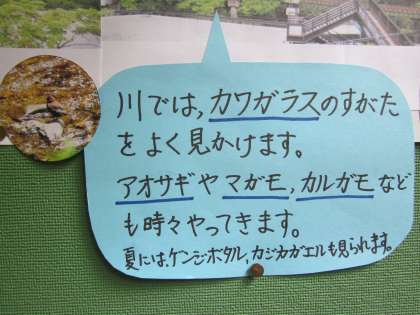 川では,カワガラスのすがた
をよく見かけます。
アオサギやマガモ,カルガモなど
も時々やってきます。
夏には,ゲンジボタル,カジカガエルも見られます。